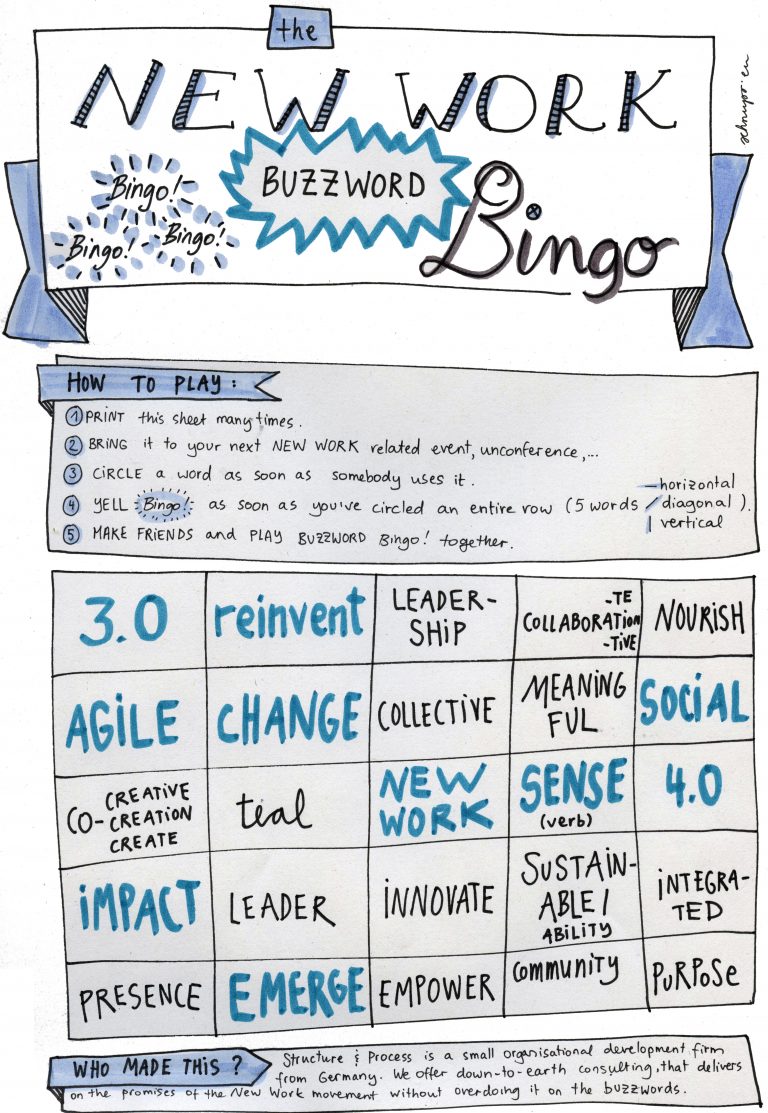 the
NEW WORK
schnupp'en
BUZZWORD
Bingo!
Bingo!
Bingo!
Bingo
HOW TO PLAY:
1 PRINT this sheet many times.
2 BRING it to your next NEW WORK related event, unconference,...
3 CIRCLE a word as soon as somebody uses it.
4 YELL Bingo! as soon as you've circled an entire row (5 words — horizontal / diagonal | vertical).
5 MAKE FRIENDS and PLAY BUZZWORD Bingo! together.
3.0
reinvent
LEADER-
SHIP
-TE
COLLABORATION
-TIVE
NOURISH
AGILE
CHANGE
COLLECTIVE
MEANING
FUL
SOCIAL
CO-
CREATIVE
CREATION
CREATE
teal
NEW
WORK
SENSE
(verb)
4.0
IMPACT
LEADER
INNOVATE
SUSTAIN-
ABLE/
ABILITY
INTEGRA-
TED
PRESENCE
EMERGE
EMPOWER
Community
PURPOSE
WHO MADE THIS?
Structure & Process is a small organisational development firm
from Germany. We offer down-to-earth consulting, that delivers
on the promises of the New Work movement without overdoing it on the buzzwords.